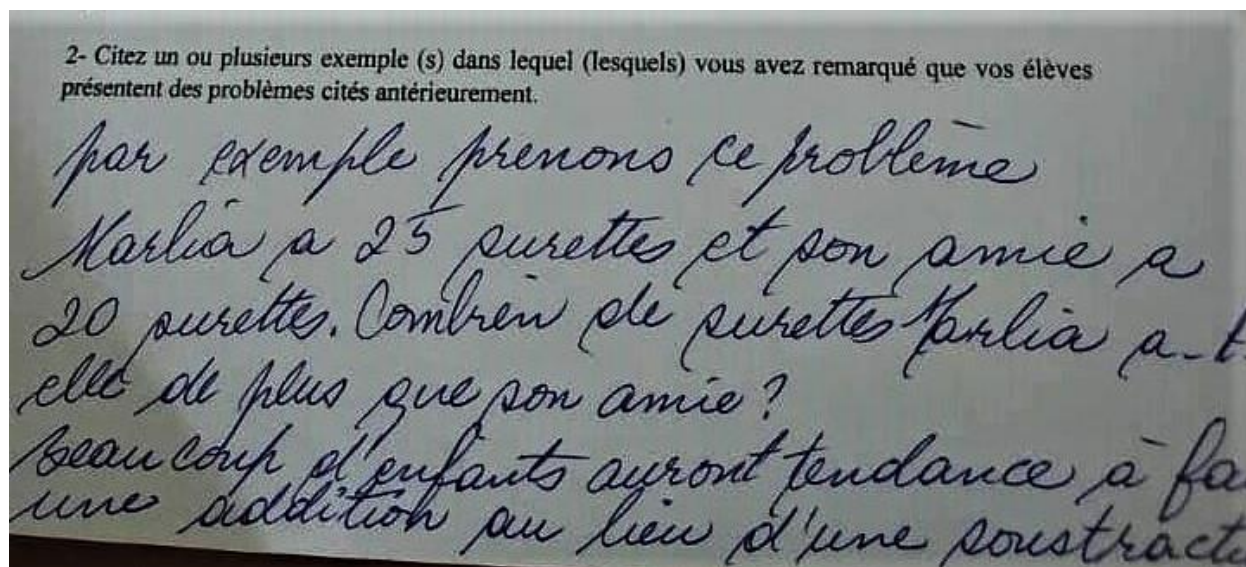 2- Citez un ou plusieurs exemple (s) dans lequel (lesquels) vous avez remarqué que vos élèves
présentent des problèmes cités antérieurement.
par exemple prenons ce problème
Marlia a 25 surettes et son amie a
20 surettes. Combien de surettes Marlia a-t
elle de plus que son amie?
beaucoup d'enfants auront tendance à fa
une addition au lieu d'une soustract